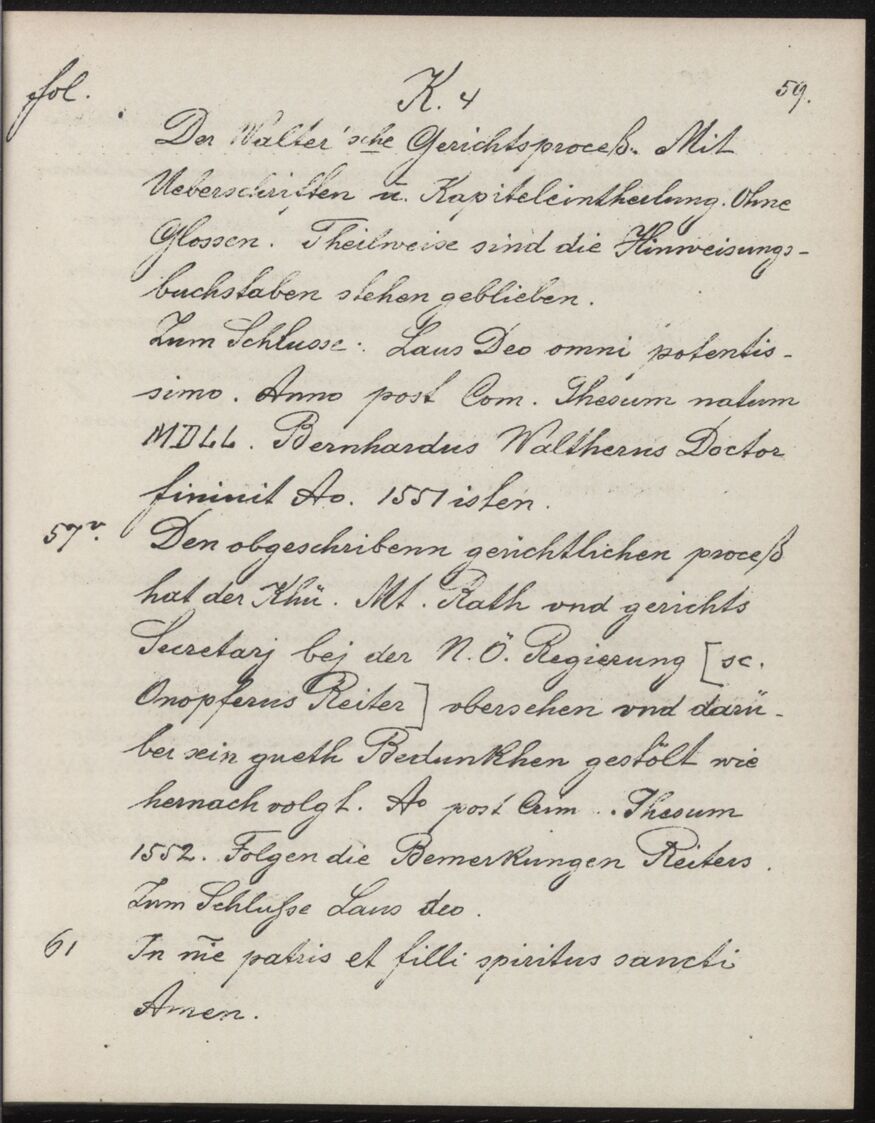 fol. K. 4 59.
Der Walter'sche Gerichtsproceß. Mit
Ueberschriften u. Kapiteleintheilung. Ohne
Glossen. Theilweise sind die Hinweisungs-
buchstaben stehen geblieben.
Zum Schlusse: Laus Deo omni potentis-
simo. Anno post Com. Jhesum natum
MDLL. Bernhardus Waltherus Doctor
fininit Ao. 1551 isten.
57v. Den obgeschribenn gerichtlichen proceß
hat der Khü. Mt. Rath vnd gerichts
Secretarj bej der N.Ö. Regierung [sc.
Onopferus Reiter] obersehen vnd darü-
ber sein gueth Bedunkhen gestölt wie
hernach volgt. Ao post Crm. Jhesum
1552. Folgen die Bemerkungen Reiters.
Zum Schluße Laus deo.
61 In nie patris et filli spiritus sancti
Amen.